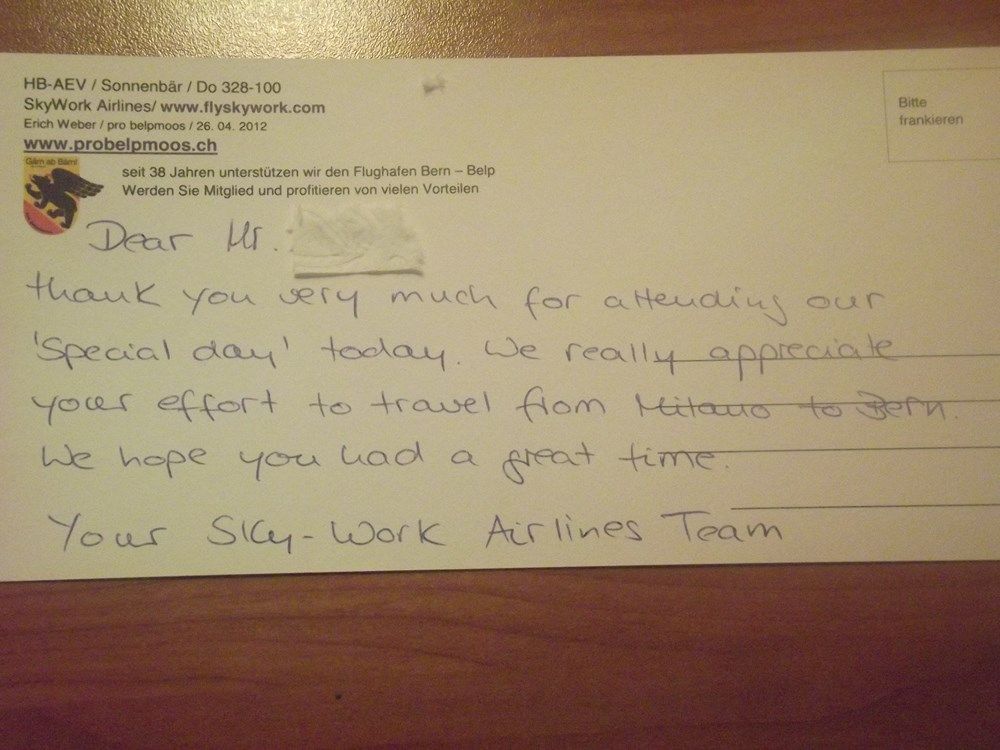 HB-AEV / Sonnenbär / Do 328-100
SkyWork Airlines/ www.flyskywork.com
Erich Weber / pro belpmoos / 26. 04. 2012
www.probelpmoos.ch
Bitte
frankieren
Gärn ab Bärn!
seit 38 Jahren unterstützen wir den Flughafen Bern – Belp
Werden Sie Mitglied und profitieren von vielen Vorteilen
Dear Mr.
thank you very much for attending our
'Special day' today. We really appreciate
your effort to travel from Milano to Bern.
We hope you had a great time.
Your Sky-Work Airlines Team